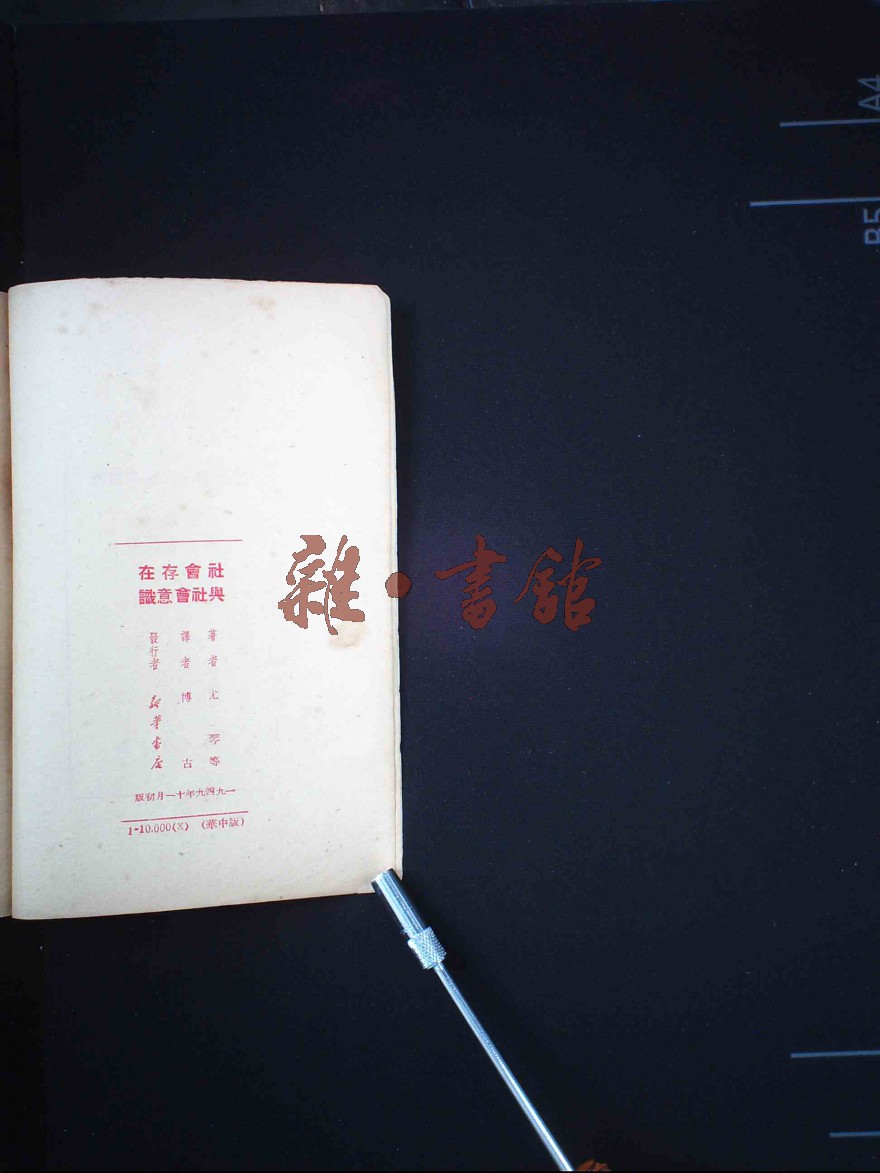 社會存在
與社會意識
著者 尤琴等
譯者 博古
發行者 新華書店
一九四九年十一月初版
1-10,000(X) (華中版)
雜·書館
A4
B5